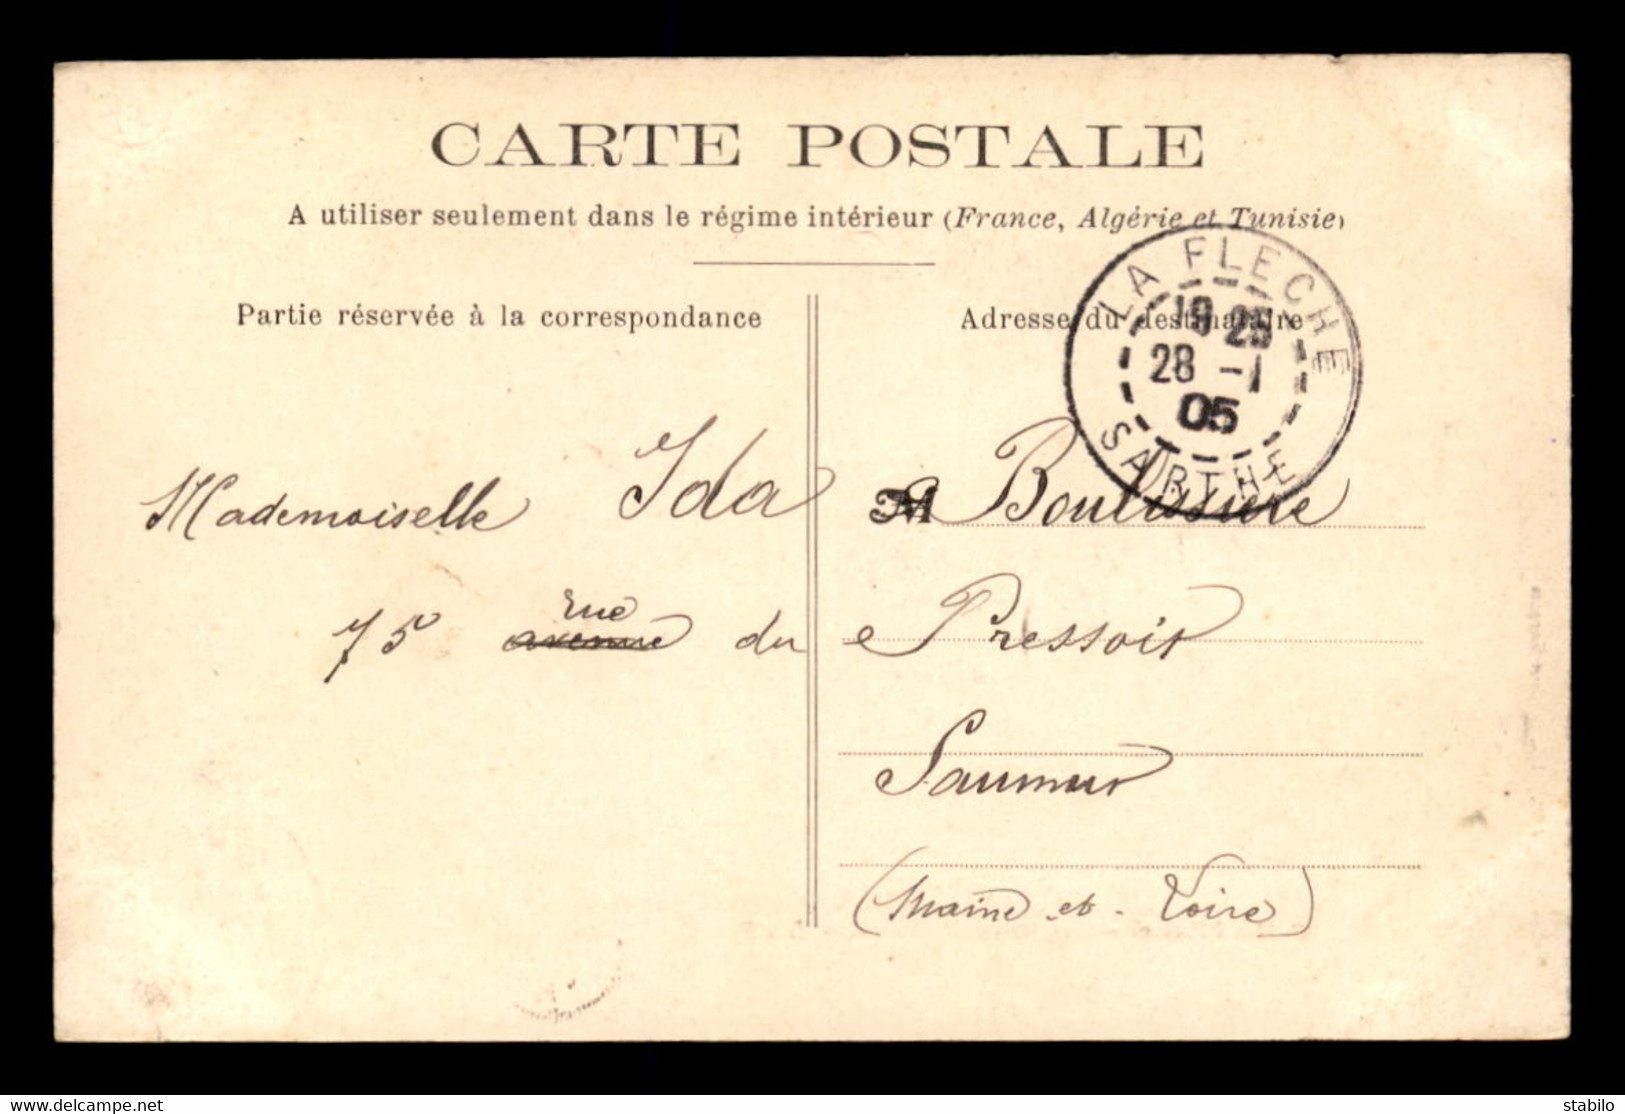 CARTE POSTALE
A utiliser seulement dans le régime intérieur (France, Algérie et Tunisie)
Partie réservée à la correspondance
Adresse du destinataire
LA FLECHE
19 25
28 -1
05
SARTHE
Mademoiselle Ida
M
75 avenue rue du Pressoir
Saumur
(Maine et Loire)
https://www.delcampe.net
stabilo